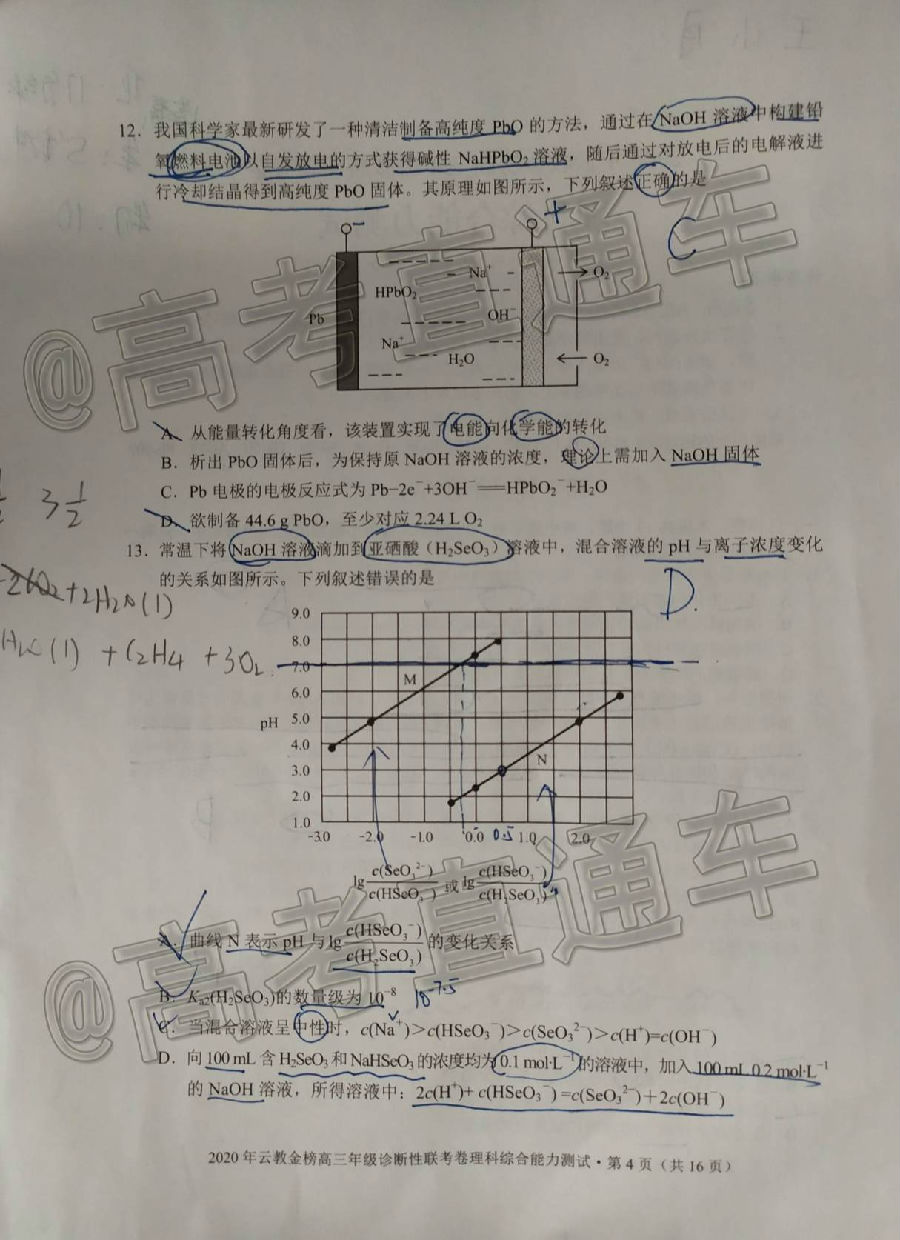 12．我国科学家最新研发了一种清洁制备高纯度 PbO 的方法，通过在 NaOH 溶液中构建铅
氧燃料电池以自发放电的方式获得碱性 NaHPbO₂ 溶液，随后通过对放电后的电解液进
行冷却结晶得到高纯度 PbO 固体。其原理如图所示，下列叙述正确的是
C
− +
Na⁺ O₂
HPbO₂⁻
Pb OH⁻
Na⁺
H₂O O₂
A．从能量转化角度看，该装置实现了电能向化学能的转化
B．析出 PbO 固体后，为保持原 NaOH 溶液的浓度，理论上需加入 NaOH 固体
C．Pb 电极的电极反应式为 Pb−2e⁻+3OH⁻══HPbO₂⁻+H₂O
3½
D．欲制备 44.6 g PbO，至少对应 2.24 L O₂
13．常温下将 NaOH 溶液滴加到亚硒酸（H₂SeO₃）溶液中，混合溶液的 pH 与离子浓度变化
的关系如图所示。下列叙述错误的是
D.
+C₂H₄ +3O₂
9.0
8.0
7.0
M
6.0
pH 5.0
4.0
N
3.0
2.0
1.0
-3.0 -2.0 -1.0 0.0 0.5 1.0 2.0
lg c(SeO₃²⁻)/c(HSeO₃⁻) 或 lg c(HSeO₃⁻)/c(H₂SeO₃)
A．曲线 N 表示 pH 与 lg c(HSeO₃⁻)/c(H₂SeO₃) 的变化关系
B．Kₐ₂(H₂SeO₃)的数量级为 10⁻⁸ 10⁻⁷·⁵
C．当混合溶液呈中性时，c(Na⁺)>c(HSeO₃⁻)>c(SeO₃²⁻)>c(H⁺)=c(OH⁻)
D．向 100 mL 含 H₂SeO₃ 和 NaHSeO₃ 的浓度均为 0.1 mol·L⁻¹ 的溶液中，加入 100 mL 0.2 mol·L⁻¹
的 NaOH 溶液，所得溶液中：2c(H⁺)+ c(HSeO₃⁻) =c(SeO₃²⁻)＋2c(OH⁻)
2020 年云教金榜高三年级诊断性联考卷理科综合能力测试·第 4 页（共 16 页）
@高考直通车
@高考直通车